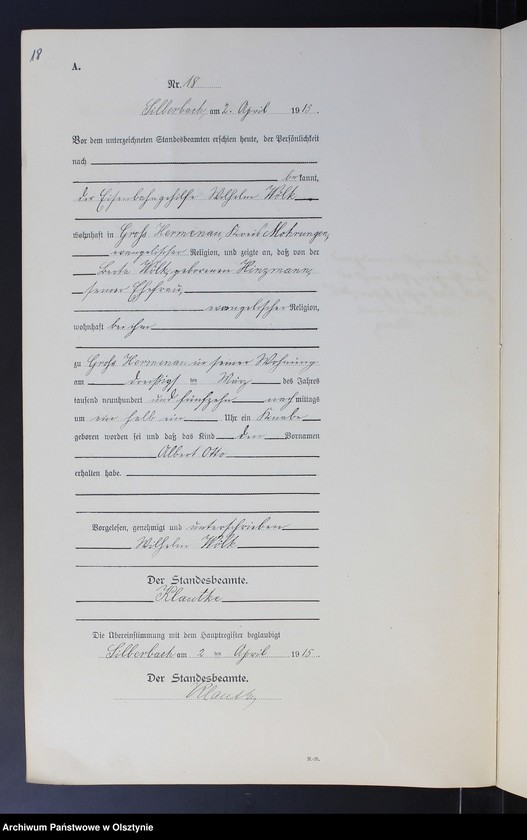 18
A.
Nr. 18
Silberbach am 2. April 1915.
Vor dem unterzeichneten Standesbeamten erschien heute, der Persönlichkeit
nach
bekannt,
der Eisenbahngehilfe Wilhelm Wölk
wohnhaft in Groß Hermenau, Kreis Mohrungen,
evangelischer Religion, und zeigte an, daß von der
Berta Wölk, geborenen Hinzmann,
seiner Ehefrau,
evangelischer Religion,
wohnhaft bei ihm
zu Groß Hermenau in seiner Wohnung
am dreißigsten März des Jahres
tausend neunhundert und fünfzehn nachmittags
um ein halb ein Uhr ein Knabe
geboren worden sei und daß das Kind den Vornamen
Albert Otto
erhalten habe.
Vorgelesen, genehmigt und unterschrieben
Wilhelm Wölk
Der Standesbeamte.
Klautke
Die Übereinstimmung mit dem Hauptregister beglaubigt
Silberbach am 2 ten April 1915.
Der Standesbeamte.
Klautke
Archiwum Państwowe w Olsztynie